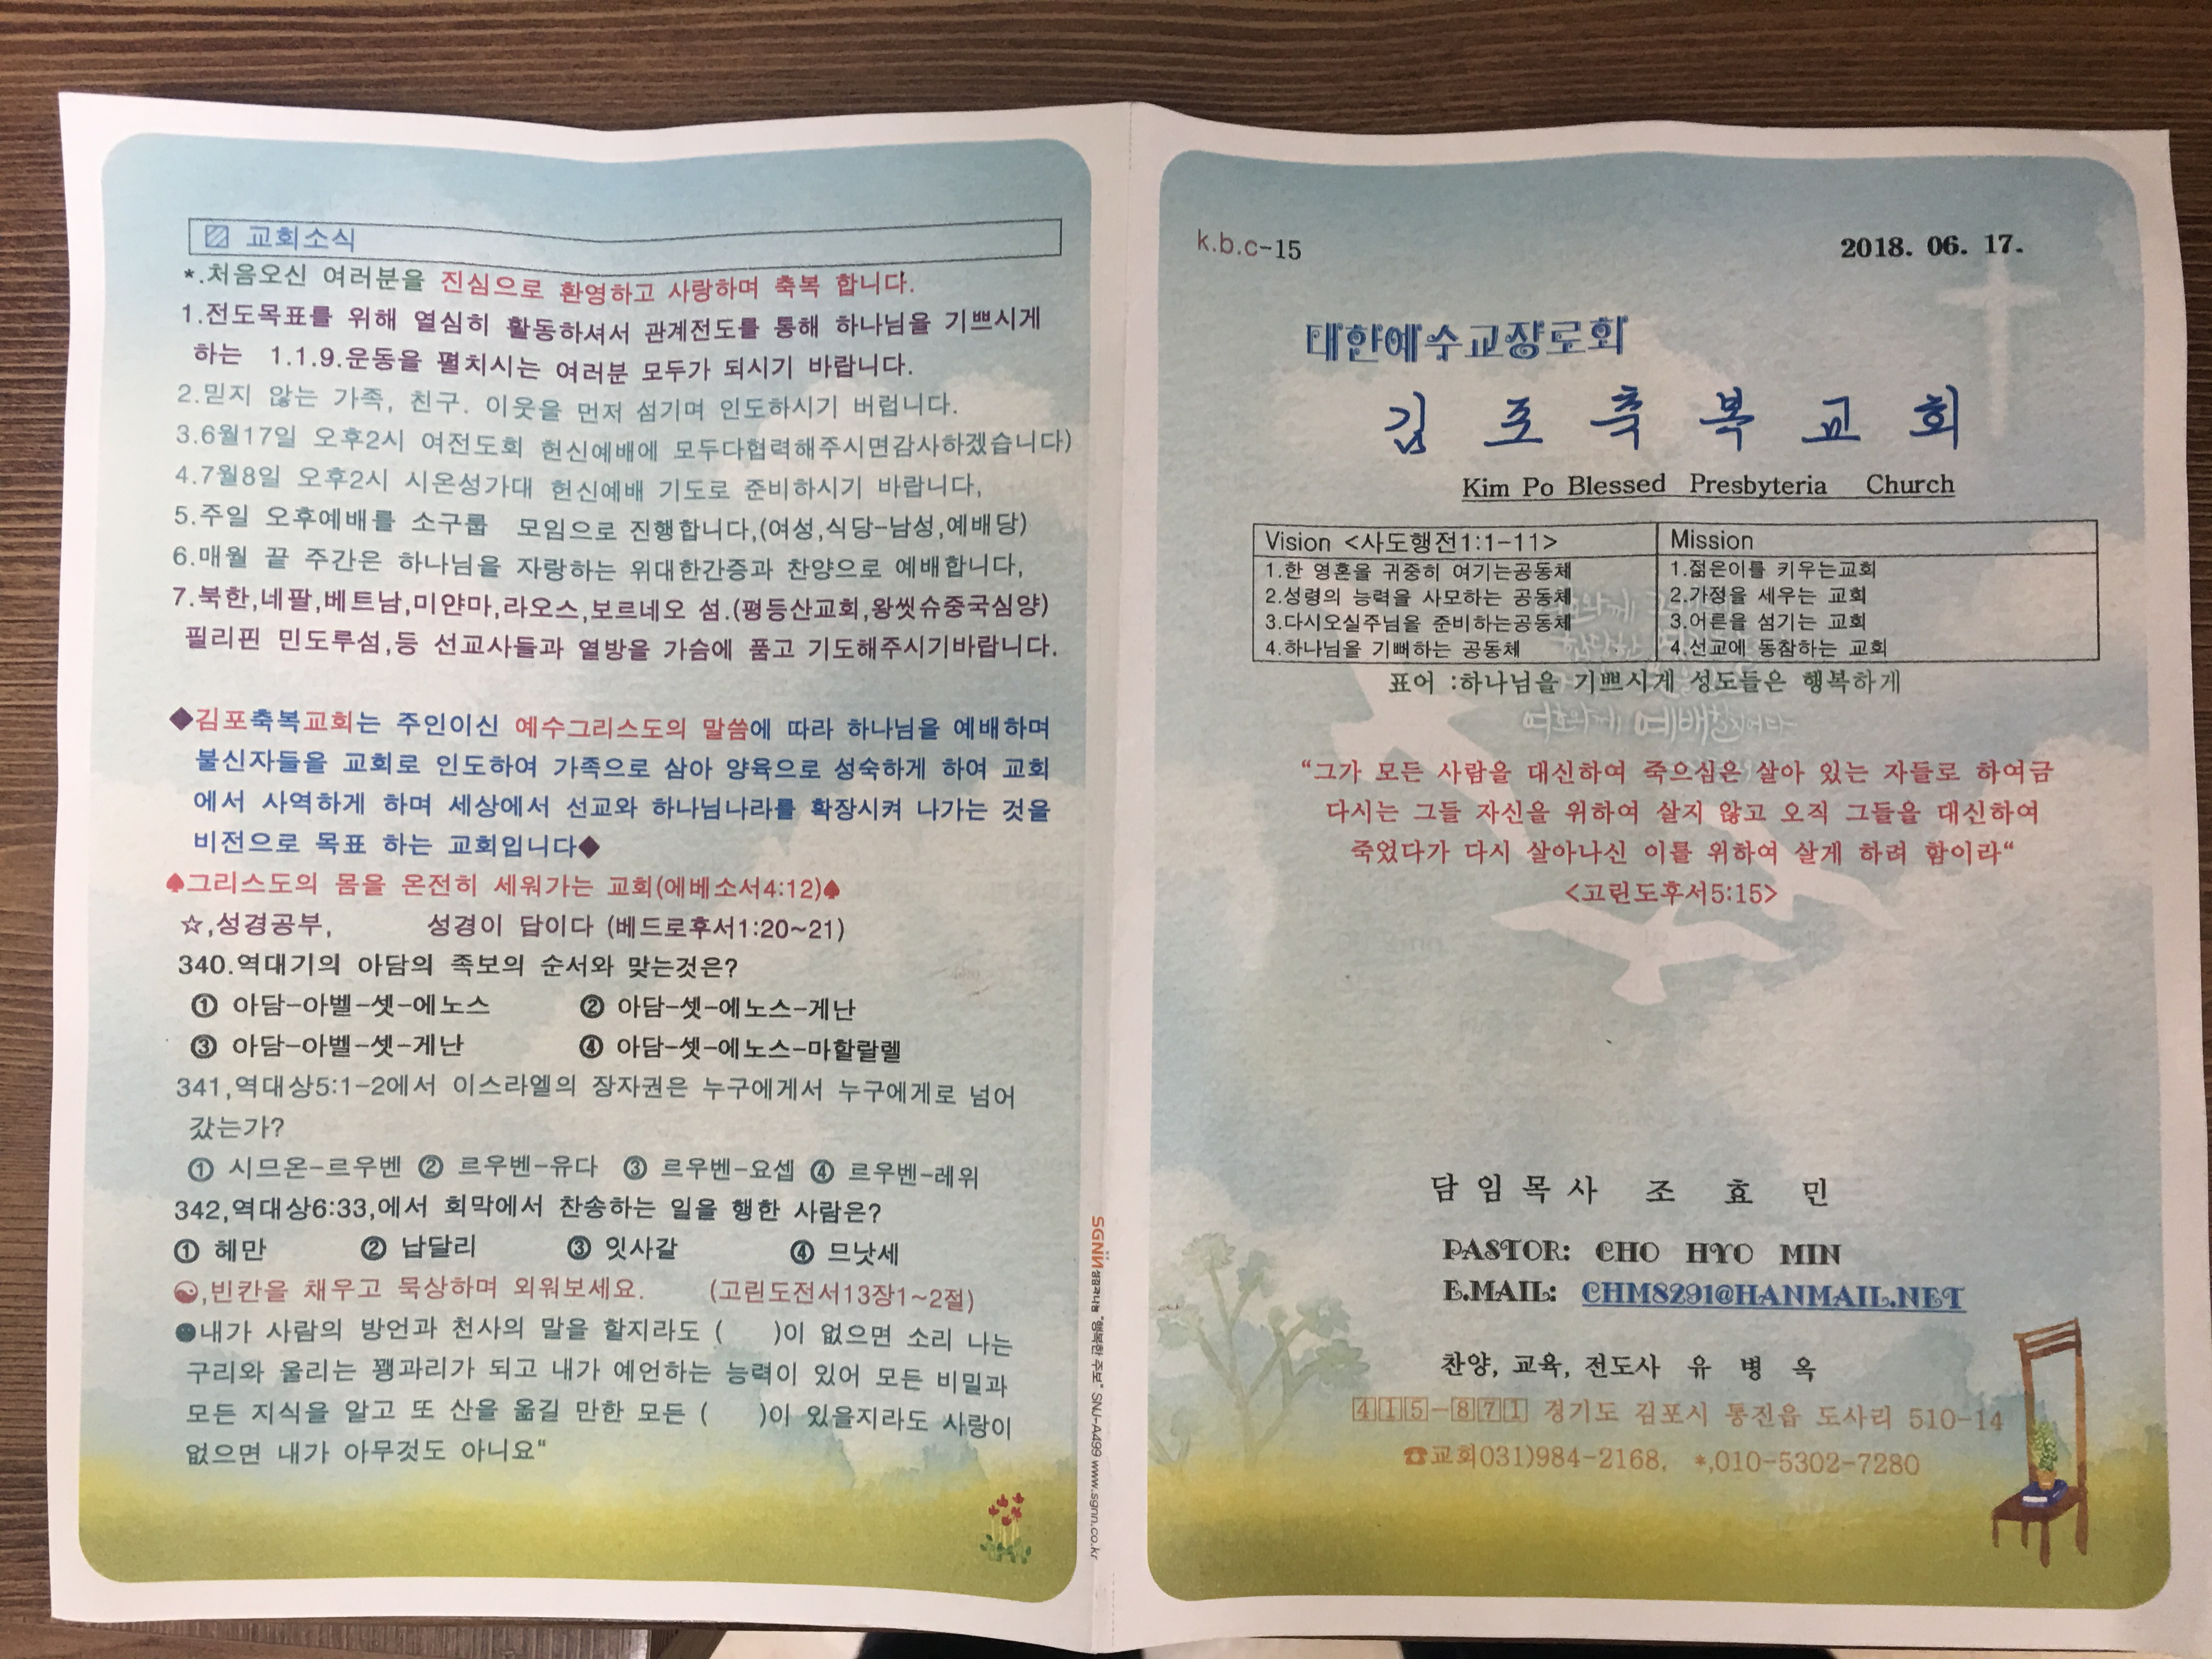 교회소식
*.처음오신 여러분을 진심으로 환영하고 사랑하며 축복 합니다.
1.전도목표를 위해 열심히 활동하셔서 관계전도를 통해 하나님을 기쁘시게
하는 1.1.9.운동을 펼치시는 여러분 모두가 되시기 바랍니다.
2.믿지 않는 가족, 친구. 이웃을 먼저 섬기며 인도하시기 버럽니다.
3.6월17일 오후2시 여전도회 헌신예배에 모두다협력해주시면감사하겠습니다)
4.7월8일 오후2시 시온성가대 헌신예배 기도로 준비하시기 바랍니다,
5.주일 오후예배를 소구룹 모임으로 진행합니다,(여성,식당-남성,예배당)
6.매월 끝 주간은 하나님을 자랑하는 위대한간증과 찬양으로 예배합니다,
7.북한,네팔,베트남,미얀마,라오스,보르네오 섬.(평등산교회,왕씻슈중국심양)
필리핀 민도루섬,등 선교사들과 열방을 가슴에 품고 기도해주시기바랍니다.
◆김포축복교회는 주인이신 예수그리스도의 말씀에 따라 하나님을 예배하며
불신자들을 교회로 인도하여 가족으로 삼아 양육으로 성숙하게 하여 교회
에서 사역하게 하며 세상에서 선교와 하나님나라를 확장시켜 나가는 것을
비전으로 목표 하는 교회입니다◆
♠그리스도의 몸을 온전히 세워가는 교회(에베소서4:12)♠
☆,성경공부, 성경이 답이다 (베드로후서1:20~21)
340.역대기의 아담의 족보의 순서와 맞는것은?
① 아담-아벨-셋-에노스 ② 아담-셋-에노스-게난
③ 아담-아벨-셋-게난 ④ 아담-셋-에노스-마할랄렐
341,역대상5:1-2에서 이스라엘의 장자권은 누구에게서 누구에게로 넘어
갔는가?
① 시므온-르우벤 ② 르우벤-유다 ③ 르우벤-요셉 ④ 르우벤-레위
342,역대상6:33,에서 회막에서 찬송하는 일을 행한 사람은?
① 헤만 ② 납달리 ③ 잇사갈 ④ 므낫세
☯,빈칸을 채우고 묵상하며 외워보세요. (고린도전서13장1~2절)
●내가 사람의 방언과 천사의 말을 할지라도 ( )이 없으면 소리 나는
구리와 울리는 꽹과리가 되고 내가 예언하는 능력이 있어 모든 비밀과
모든 지식을 알고 또 산을 옮길 만한 모든 ( )이 있을지라도 사랑이
없으면 내가 아무것도 아니요"
SGNN 생명의나눔 "행복한 주보" SNJ-A499 www.sgnn.co.kr
k.b.c-15 2018. 06. 17.
대한예수교장로회
김 포 축 복 교 회
Kim Po Blessed Presbyteria Church
Vision <사도행전1:1-11> Mission
1.한 영혼을 귀중히 여기는공동체 1.젊은이를 키우는교회
2.성령의 능력을 사모하는 공동체 2.가정을 세우는 교회
3.다시오실주님을 준비하는공동체 3.어른을 섬기는 교회
4.하나님을 기뻐하는 공동체 4.선교에 동참하는 교회
표어 :하나님을 기쁘시게 성도들은 행복하게
여호와께 예배할지어다
"그가 모든 사람을 대신하여 죽으심은 살아 있는 자들로 하여금
다시는 그들 자신을 위하여 살지 않고 오직 그들을 대신하여
죽었다가 다시 살아나신 이를 위하여 살게 하려 함이라"
<고린도후서5:15>
담 임 목 사 조 효 민
PASTOR: CHO HYO MIN
E.MAIL: CHM8291@HANMAIL.NET
찬양, 교육, 전도사 유 병 옥
415-871 경기도 김포시 통진읍 도사리 510-14
☎교회031)984-2168, *,010-5302-7280